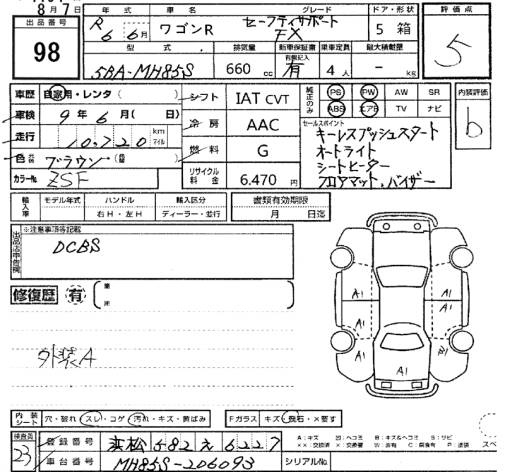 8月7日
出品番号 98
年式 R6 6月 車名 ワゴンR グレード セーフティサポート FX ドア・形状 5 箱
型式 5BA-MH85S 排気量 660 cc 新車保証書 有限記入 有 乗車定員 4人 最大積載量 -
評価点 5
車歴 自家用・レンタ( )
車検 9年6月( 日)
走行 10,720 km マイル
色 ブラウン( )
カラーNo ZSF
シフト IAT CVT
冷房 AAC
燃料 G
リサイクル料金 6,470円
純正のみ PS PW AW SR
ABS エアB TV ナビ
セールスポイント
キーレスプッシュスタート
オートライト
シートヒーター
フロアマット、バイザー
内装評価 b
輸入車 モデル年式 ハンドル 右H・左H 輸入区分 ディーラー・並行
書類有効期限 月 日迄
※注意事項等記載
DCBS
修復歴 有
外装A
A1 A1
A1 A1
A1
内装シート 穴・破れ・スレ・コゲ・汚れ・キズ・黄ばみ
Fガラス キズ・飛石・×要す
A:キズ
検査員 23
登録番号 浜松 582 え 6227
車台番号 MH85S-206093
シリアルNo.